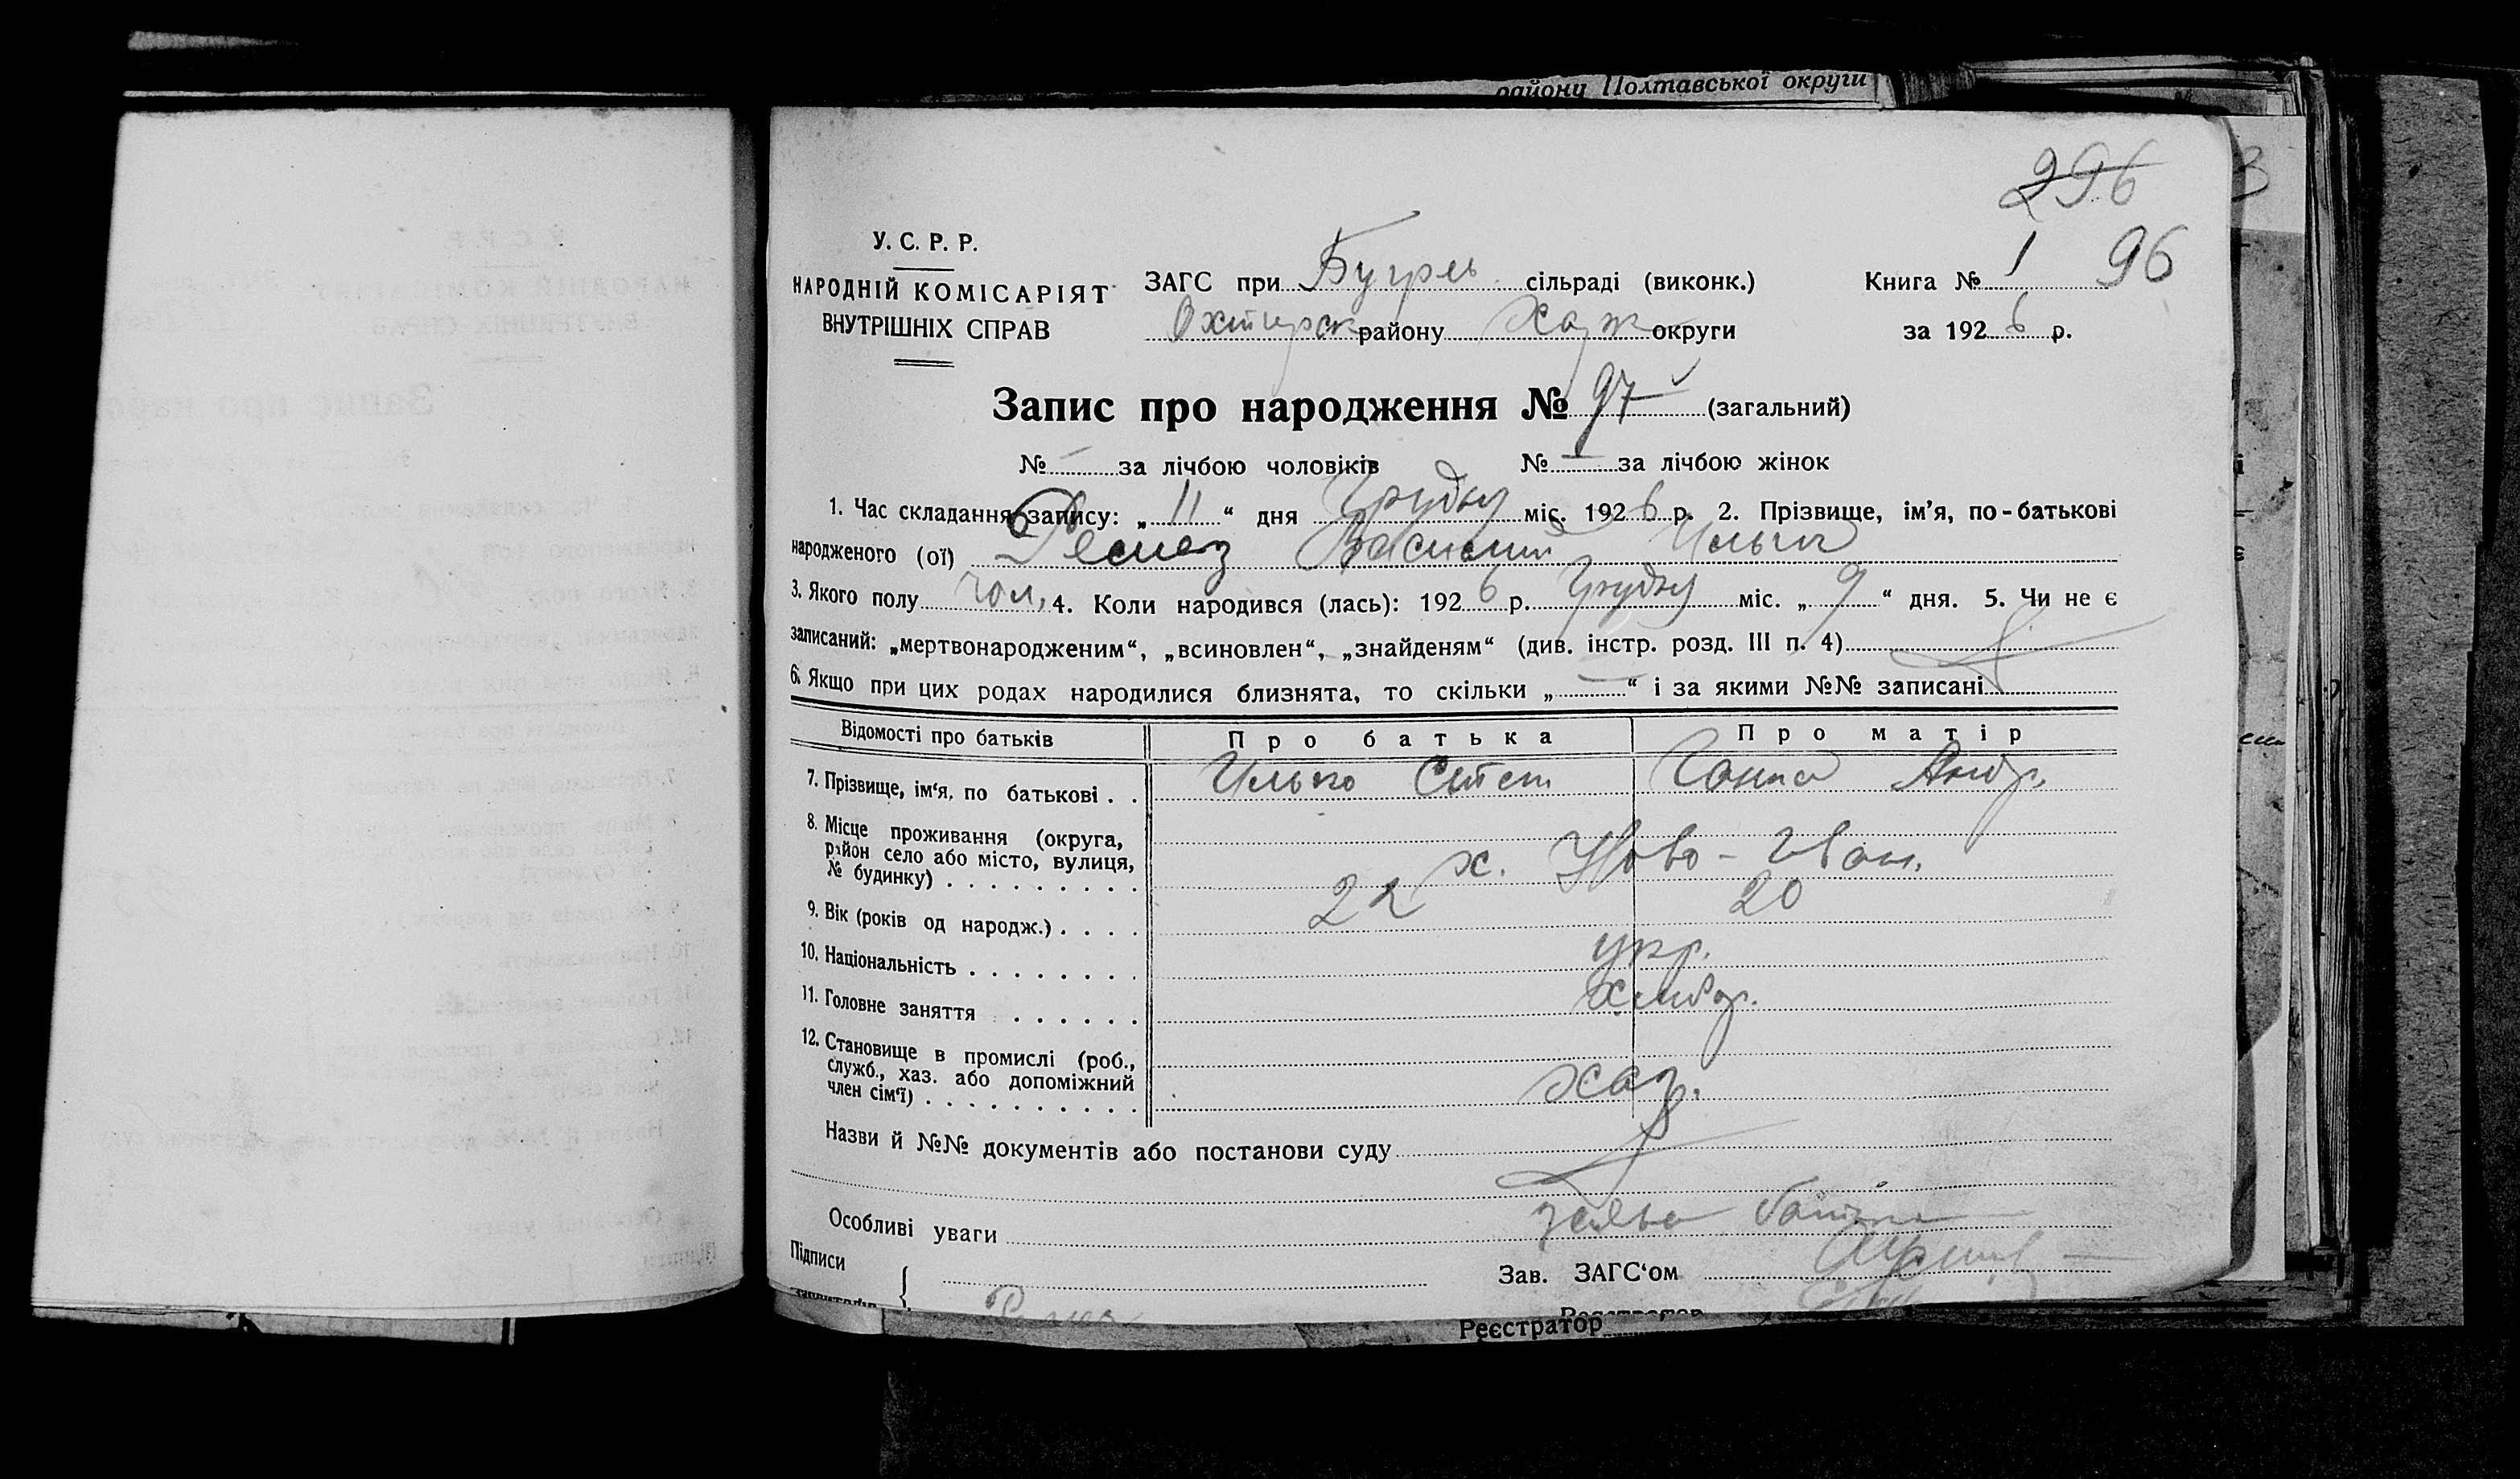 району Полтавської округи
296
У. С. Р. Р.
НАРОДНІЙ КОМІСАРІЯТ
ВНУТРІШНІХ СПРАВ
ЗАГС при Бугрев. сільраді (виконк.)
Охтирск району Харк округи
Книга № 1 96
за 1926 р.
Запис про народження № 97 (загальний)
№ за лічбою чоловіків № за лічбою жінок
1. Час складання запису: „ 11 “ дня Грудня міс. 1926 р. 2. Прізвище, ім’я, по-батькові
народженого (ої) Василий Ильич
3. Якого полу чол, 4. Коли народився (лась): 1926 р. Грудня міс. „ 9 “ дня. 5. Чи не є
записаний: „мертвонародженим“, „всиновлен“, „знайденям“ (див. інстр. розд. III п. 4)
6. Якщо при цих родах народилися близнята, то скільки „ — “ і за якими №№ записані
Відомості про батьків Про батька Про матір
7. Прізвище, ім‘я, по батькові . . Илько Степ Ганна Андр.
8. Місце проживання (округа,
район село або місто, вулиця,
№ будинку) . . . . . . . . . х. Ново-Иван.
9. Вік (років од народж.) . . . . 22 20
10. Національність . . . . . . . . укр.
11. Головне заняття . . . . . . Хлибор.
12. Становище в промислі (роб.,
служб., хаз. або допоміжний
член сім‘ї) . . . . . . . . . . хаз.
Назви й №№ документів або постанови суду
Особливі уваги заява батька
Підписи
Зав. ЗАГС‘ом
Реєстратор
Реєстратор